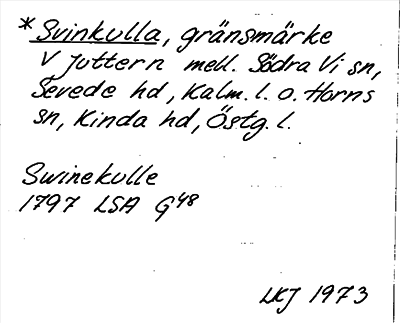 * Svinkulla, gränsmärke
V Juttern mell. Södra Vi sn,
Sevede hd, Kalm. l. o. Horns
sn, Kinda hd, Östg. l.
Swinekulle
1797 LSA G48
LKJ 1973